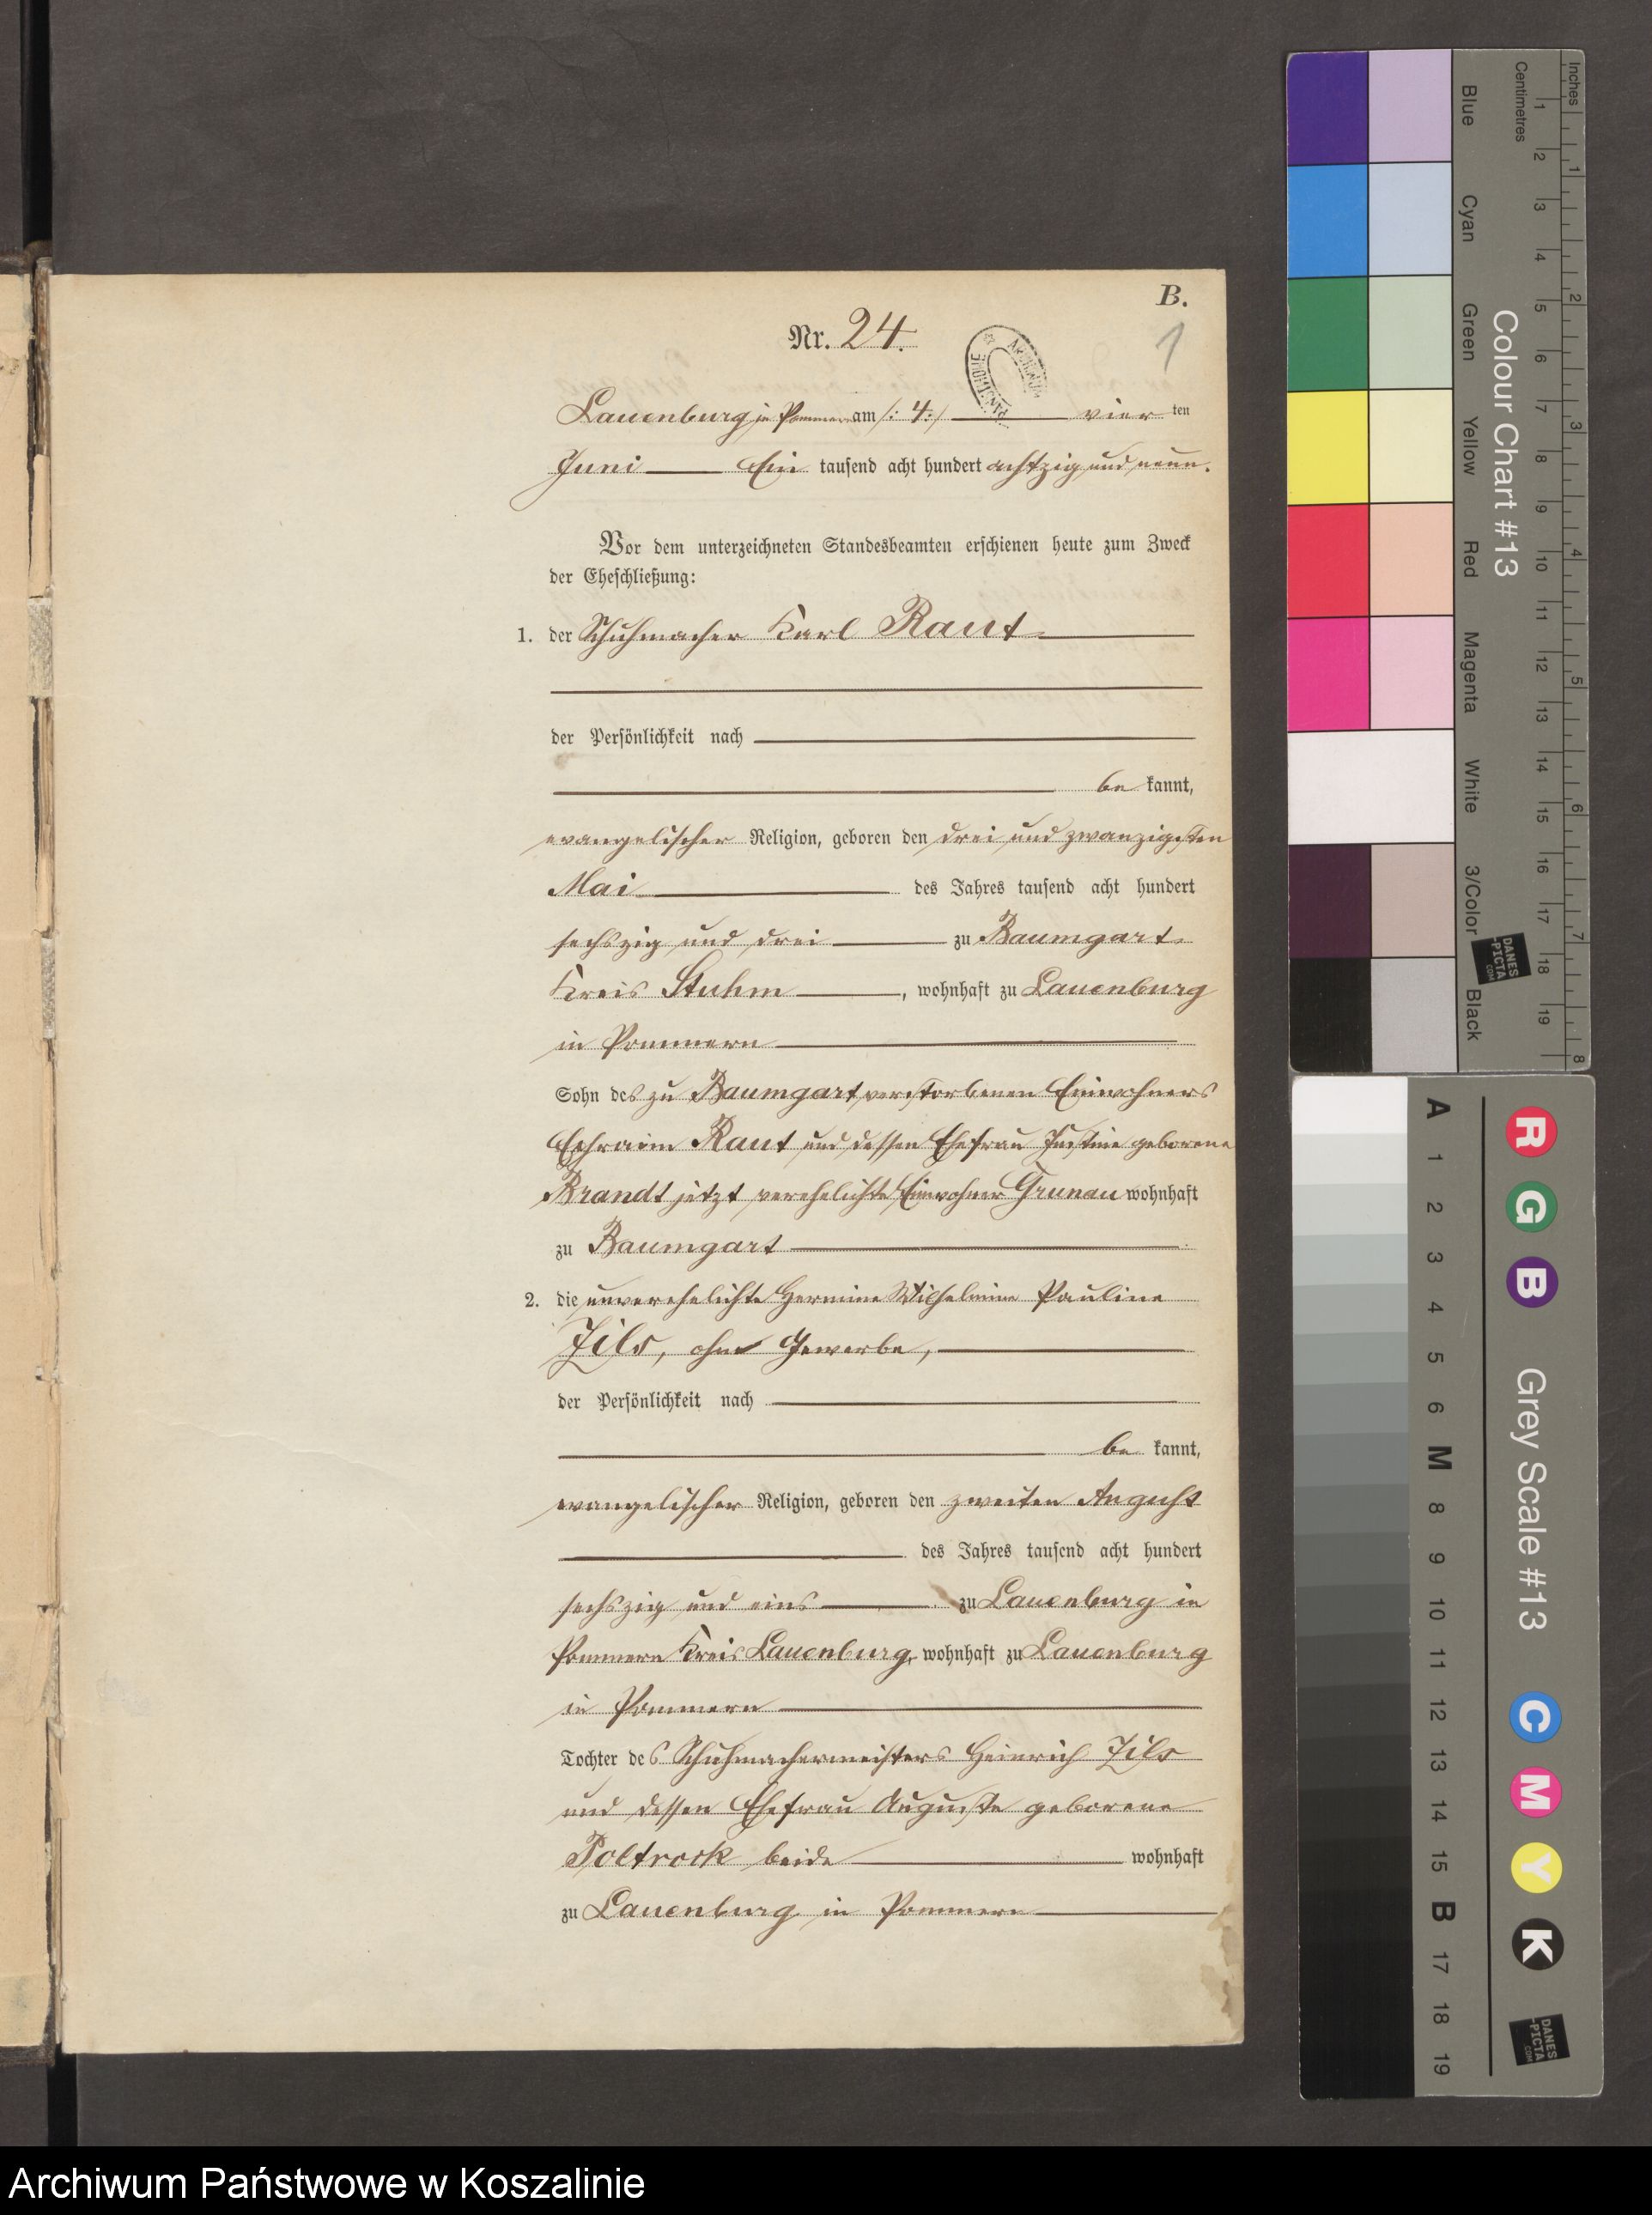 B.
Nr. 24.
1
ARCHIWUM PAŃSTWOWE
Lauenburg in Pommern am /: 4. :/ vier ten
Juni Ein tausend acht hundert achtzig und neun.
Vor dem unterzeichneten Standesbeamten erschienen heute zum Zweck
der Eheschließung:
1. der Schuhmacher Karl Raut
der Persönlichkeit nach
be kannt,
evangelischer Religion, geboren den drei und zwanzigsten
Mai des Jahres tausend acht hundert
sechszig und drei zu Baumgart
Kreis Stuhm, wohnhaft zu Lauenburg
in Pommern
Sohn des zu Baumgart verstorbenen Einwohners
Ephraim Raut und dessen Ehefrau Justine geborene
Brandt jetzt verehelichte Einwohner Grunau wohnhaft
zu Baumgart
2. die unverehelichte Hermine Wilhelmine Pauline
Zils, ohne Gewerbe,
der Persönlichkeit nach
be kannt,
evangelischer Religion, geboren den zweiten August
des Jahres tausend acht hundert
sechszig und eins zu Lauenburg in
Pommern Kreis Lauenburg, wohnhaft zu Lauenburg
in Pommern
Tochter des Schuhmachermeisters Heinrich Zils
und dessen Ehefrau Auguste geborene
Poltrock beide wohnhaft
zu Lauenburg in Pommern
Inches 1 2 3 4 5 6 7 8
Centimetres 1 2 3 4 5 6 7 8 9 10 11 12 13 14 15 16 17 18 19
Colour Chart #13
Blue Cyan Green Yellow Red Magenta White 3/Color Black
DANES
-PICTA
.COM
A 1 2 3 4 5 6 M 8 9 10 11 12 13 14 15 B 17 18 19
R G B
Grey Scale #13
C M Y K
DANES
-PICTA
.COM
Archiwum Państwowe w Koszalinie